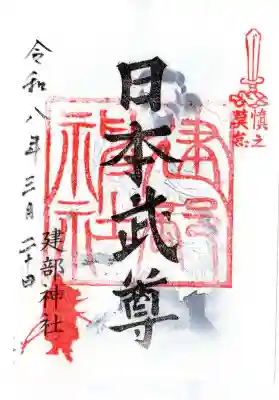 慎之
莫怠
建部
神社
日本武尊
令和八年三月二十日
建部神社